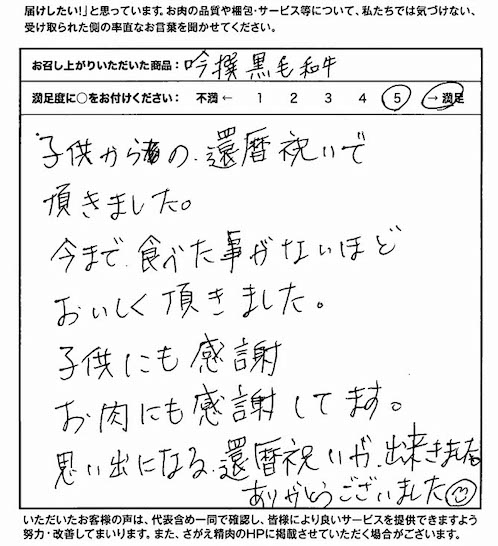 届けしたい!」と思っています。お肉の品質や梱包・サービス等について、私たちでは気づけない、
受け取られた側の率直なお言葉を聞かせてください。
お召し上がりいただいた商品: 吟撰黒毛和牛
満足度に○をお付けください: 不満 ← 1 2 3 4 5 → 満足
子供からの、還暦祝いで
頂きました。
今まで、食べた事がないほど
おいしく頂きました。
子供にも感謝
お肉にも感謝してます。
思い出になる、還暦祝いが、出来ました
ありがとうございました
いただいたお客様の声は、代表含め一同で確認し、皆様により良いサービスを提供できますよう
努力・改善してまいります。また、さがえ精肉のHPに掲載させていただく場合がございます。